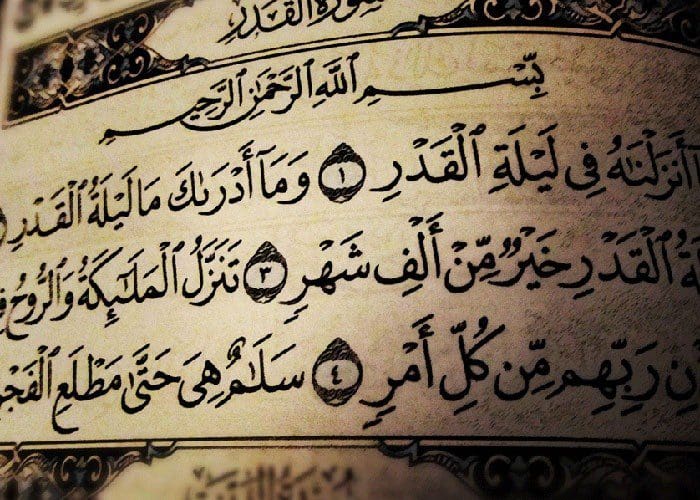 سُورَةُ الْقَدْرِ
بِسْمِ اللَّهِ الرَّحْمَٰنِ الرَّحِيمِ
أَنزَلْنَاهُ فِي لَيْلَةِ الْقَدْرِ ١ وَمَا أَدْرَاكَ مَا لَيْلَةُ الْقَدْرِ
الْقَدْرِ خَيْرٌ مِّنْ أَلْفِ شَهْرٍ ٣ تَنَزَّلُ الْمَلَائِكَةُ وَالرُّوحُ
رَبِّهِم مِّن كُلِّ أَمْرٍ ٤ سَلَامٌ هِيَ حَتَّىٰ مَطْلَعِ الْفَجْرِ